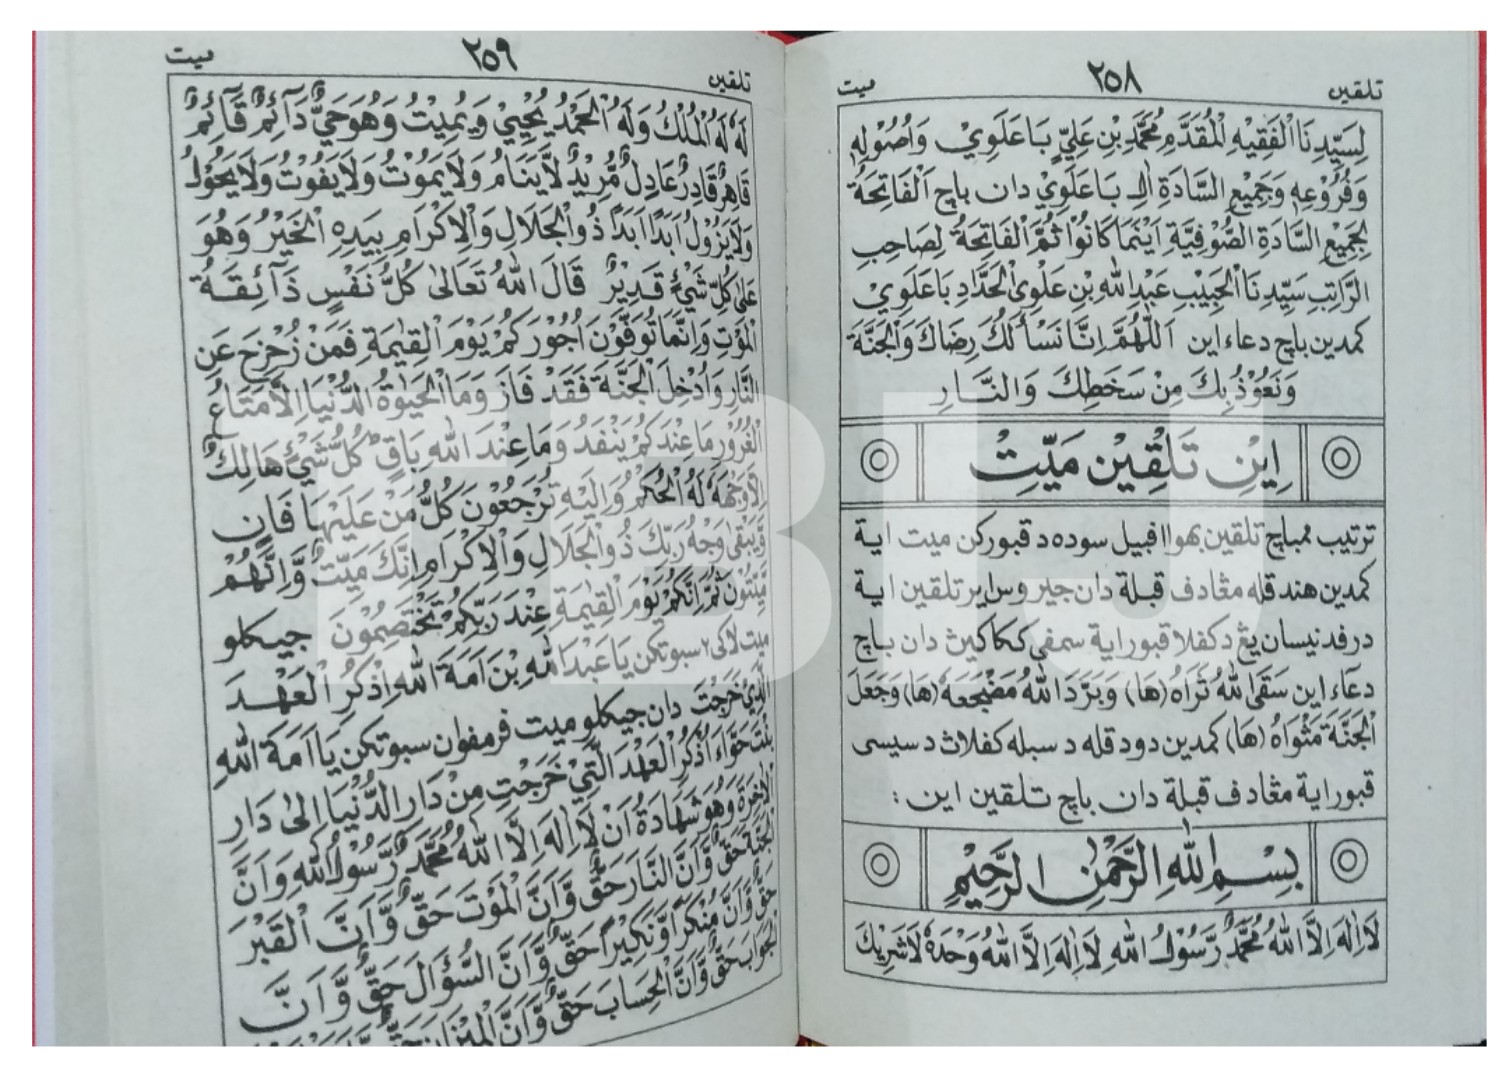 تلقين ٢٥٨ ميت
لِسَيِّدِنَا الْفَقِيْهِ الْمُقَدَّمِ مُحَمَّدِ بْنِ عَلِيٍّ بَاعَلَوِيْ وَاُصُوْلِهِ
وَفُرُوْعِهِ وَجَمِيْعِ السَّادَةِ اٰلِ بَاعَلَوِيْ دان باچ اَلْفَاتِحَةُ
لِجَمِيْعِ السَّادَةِ الصُّوْفِيَّةِ اَيْنَمَا كَانُوْا ثُمَّ الْفَاتِحَةُ لِصَاحِبِ
الرَّاتِبِ سَيِّدِنَا الْحَبِيْبِ عَبْدِ اللهِ بْنِ عَلْوِى الْحَدَّادِ بَاعَلَوِيْ
كمدين باچ دعاء اين اَللّٰهُمَّ اِنَّا نَسْأَلُكَ رِضَاكَ وَالْجَنَّةَ
وَنَعُوْذُ بِكَ مِنْ سَخَطِكَ وَالنَّارِ
اِيْنِ تَلْقِيْن مَيِّتْ
ترتيب ممباچ تلقين بهوا افبيل سوده د قبوركن ميت اية
كمدين هندقله مڠادف قبلة دان جيروس اير تلقين اية
درفد نيسان يڠ د كفلا قبور اية سمفى ككاكيڽ دان باچ
دعاء اين سَقَى اللهُ ثَرَاهُ (هَا) وَبَرَّدَ اللهُ مَضْجَعَهُ (هَا) وَجَعَلَ
الْجَنَّةَ مَثْوَاهُ (هَا) كمدين دودقله د سبله كفلاڽ د سيسى
قبور اية مڠادف قبلة دان باچ تلقين اين :
بِسْمِ اللهِ الرَّحْمٰنِ الرَّحِيْمِ
لَا اِلٰهَ اِلَّا اللهُ مُحَمَّدٌ رَّسُوْلُ اللهِ لَا اِلٰهَ اِلَّا اللهُ وَحْدَهُ لَا شَرِيْكَ
تلقين ٢٥٩ ميت
لَهُ لَهُ الْمُلْكُ وَلَهُ الْحَمْدُ يُحْيِيْ وَيُمِيْتُ وَهُوَ حَيٌّ دَآئِمٌ قَآئِمٌ
قَاهِرٌ قَادِرٌ عَادِلٌ مُّرِيْدٌ لَّا يَنَامُ وَلَا يَمُوْتُ وَلَا يَفُوْتُ وَلَا يَحُوْلُ
وَلَا يَزُوْلُ اَبَدًا اَبَدًا ذُو الْجَلَالِ وَالْاِكْرَامِ بِيَدِهِ الْخَيْرُ وَهُوَ
عَلٰى كُلِّ شَيْءٍ قَدِيْرٌ قَالَ اللهُ تَعَالٰى كُلُّ نَفْسٍ ذَآئِقَةُ
الْمَوْتِ وَاِنَّمَا تُوَفَّوْنَ اُجُوْرَكُمْ يَوْمَ الْقِيٰمَةِ فَمَنْ زُحْزِحَ عَنِ
النَّارِ وَاُدْخِلَ الْجَنَّةَ فَقَدْ فَازَ وَمَا الْحَيٰوةُ الدُّنْيَا اِلَّا مَتَاعُ
الْغُرُوْرِ مَا عِنْدَكُمْ يَنْفَدُ وَمَا عِنْدَ اللهِ بَاقٍ كُلُّ شَيْءٍ هَالِكٌ
اِلَّا وَجْهَهُ لَهُ الْحُكْمُ وَاِلَيْهِ تُرْجَعُوْنَ كُلُّ مَنْ عَلَيْهَا فَانٍ
وَّيَبْقٰى وَجْهُ رَبِّكَ ذُو الْجَلَالِ وَالْاِكْرَامِ اِنَّكَ مَيِّتٌ وَّاِنَّهُمْ
مَّيِّتُوْنَ ثُمَّ اِنَّكُمْ يَوْمَ الْقِيٰمَةِ عِنْدَ رَبِّكُمْ تَخْتَصِمُوْنَ جيكلو
ميت لاكى٢ سبوتكن يَا عَبْدَ اللهِ بْنَ اَمَةِ اللهِ اذْكُرِ الْعَهْدَ
الَّذِيْ خَرَجْتَ دان جيكلو ميت فرمفوان سبوتكن يَا اَمَةَ اللهِ
بِنْتَ حَوَّاءَ اذْكُرِ الْعَهْدَ الَّتِيْ خَرَجْتِ مِنْ دَارِ الدُّنْيَا اِلٰى دَارِ
الْاٰخِرَةِ وَهُوَ شَهَادَةُ اَنْ لَا اِلٰهَ اِلَّا اللهُ مُحَمَّدٌ رَّسُوْلُ اللهِ وَاَنَّ
الْجَنَّةَ حَقٌّ وَّاَنَّ النَّارَ حَقٌّ وَّاَنَّ الْمَوْتَ حَقٌّ وَّاَنَّ الْقَبْرَ
حَقٌّ وَّاَنَّ مُنْكَرًا وَّنَكِيْرًا حَقٌّ وَّاَنَّ السُّؤَالَ حَقٌّ وَّاَنَّ
الْجَوَابَ حَقٌّ وَّاَنَّ الْحِسَابَ حَقٌّ وَّاَنَّ الْمِيْزَانَ حَقٌّ
BIJ